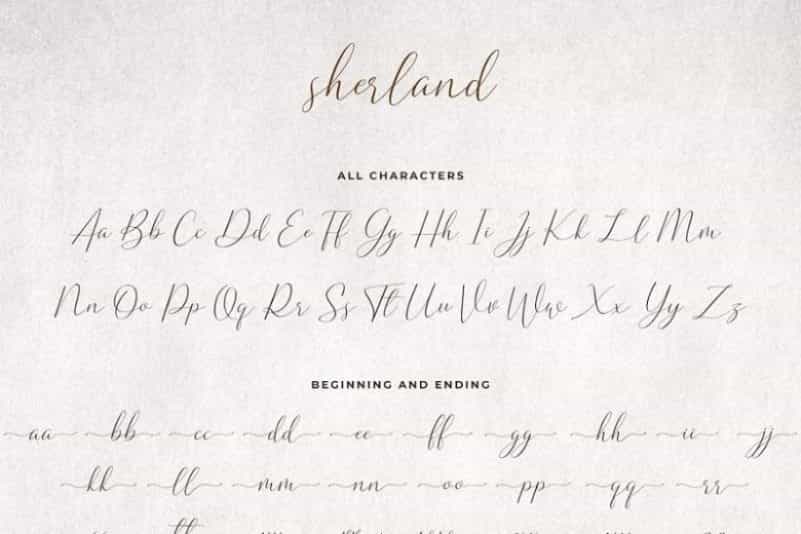 sherland
ALL CHARACTERS
Aa Bb Cc Dd Ee Ff Gg Hh Ii Jj Kk Ll Mm
Nn Oo Pp Qq Rr Ss Tt Uu Vv Ww Xx Yy Zz
BEGINNING AND ENDING
aa bb cc dd ee ff gg hh ii jj
kk ll mm nn oo pp qq rr